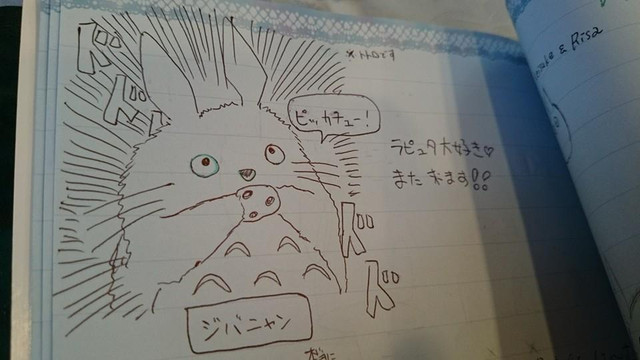 ドド
※トトロです
ピッカチュー!
ラピュタ大好き♡
また来ます!!
ドド
ジバニャン
& Risa